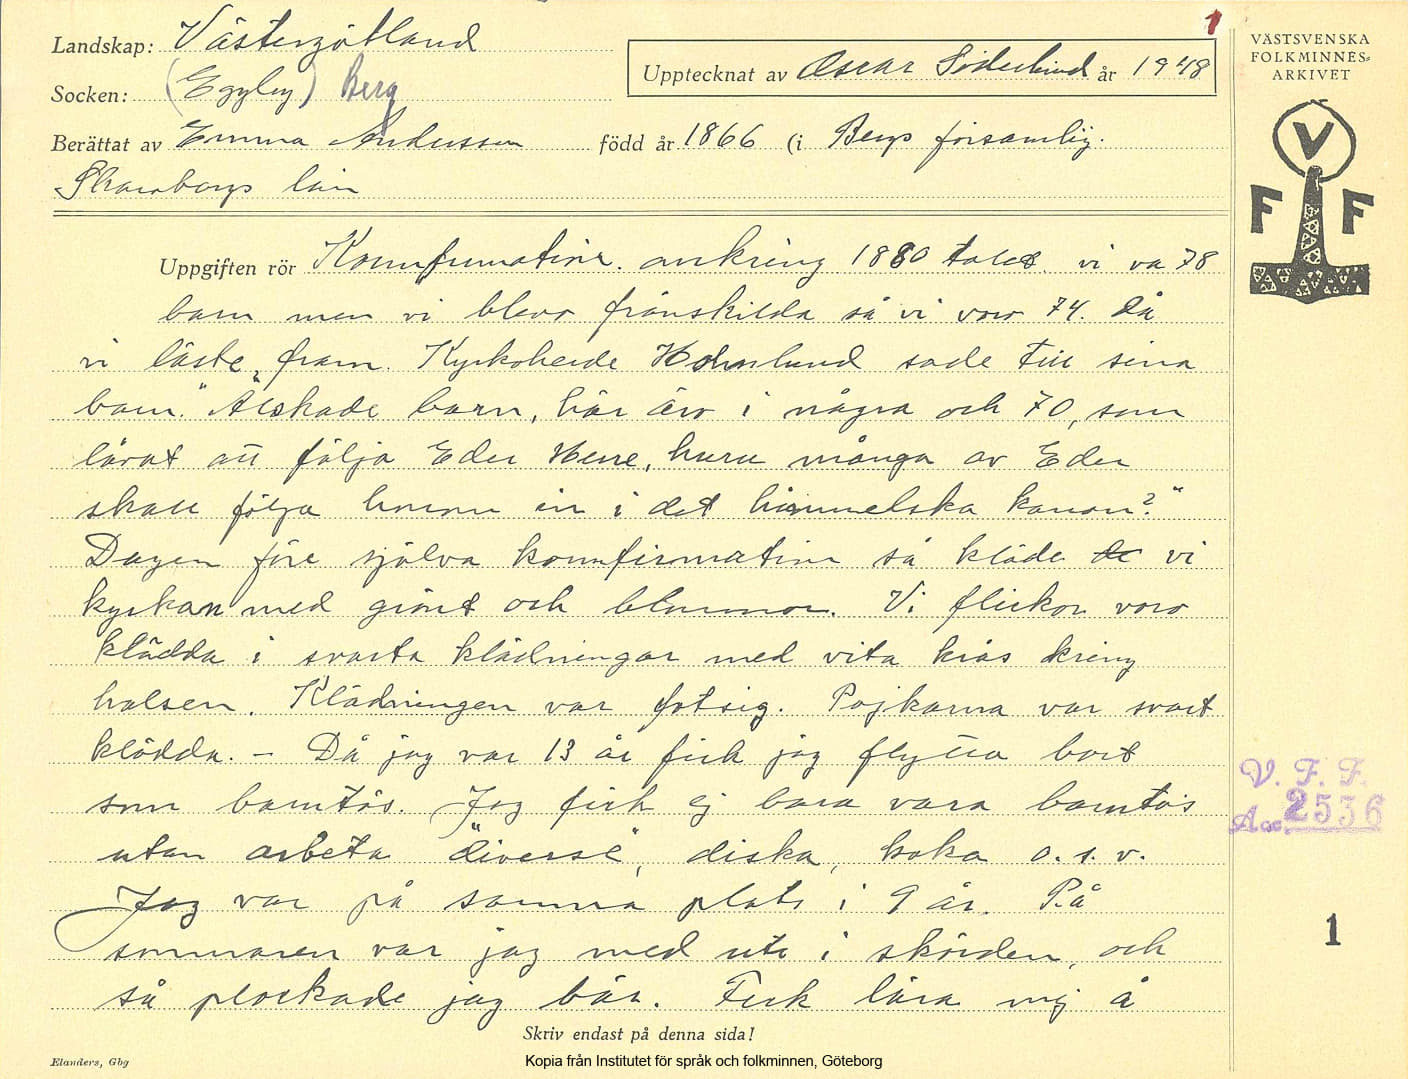 1
Landskap: Västergötland
Upptecknat av Oscar Söderlund år 1948
Socken: (Eggby) Berg
Berättat av Emma Andersson född år 1866 (i Bergs församlig.
Skaraborgs län
Uppgiften rör Konnfirmation. omkring 1880 talet. vi va 78
barn men vi blevo frånskilda så vi voro 74. då
vi läste fram. Kyrkoherde Holmlund sade till sina
barn. "Älskade barn, här äro i några och 70, som
lärat att följa Eder Herre, huru många av Eder
skall följa honom in i det himmelska kanan?"
Dagen före själva konnfirmation så klädde de vi
kyrkan med grönt och blommor. Vi flickor voro
klädda i svarta klädningar med vita krås kring
halsen. Klädningen var fotsig. Pojkarna var svart
klädda. – Då jag var 13 år fick jag flytta bort
som barntös. Jag fick ej bara vara barntös
utan arbeta "diverse", diska, koka o.s.v.
Jag var på samma plats i 9 år. På
sommaren var jag med ute i skörden, och
så plockade jag bär. Fick lära mig å
Skriv endast på denna sida!
Elanders, Gbg
Kopia från Institutet för språk och folkminnen, Göteborg
VÄSTSVENSKA
FOLKMINNES=
ARKIVET
V
F F
V. F. F.
Acc. 2536
1